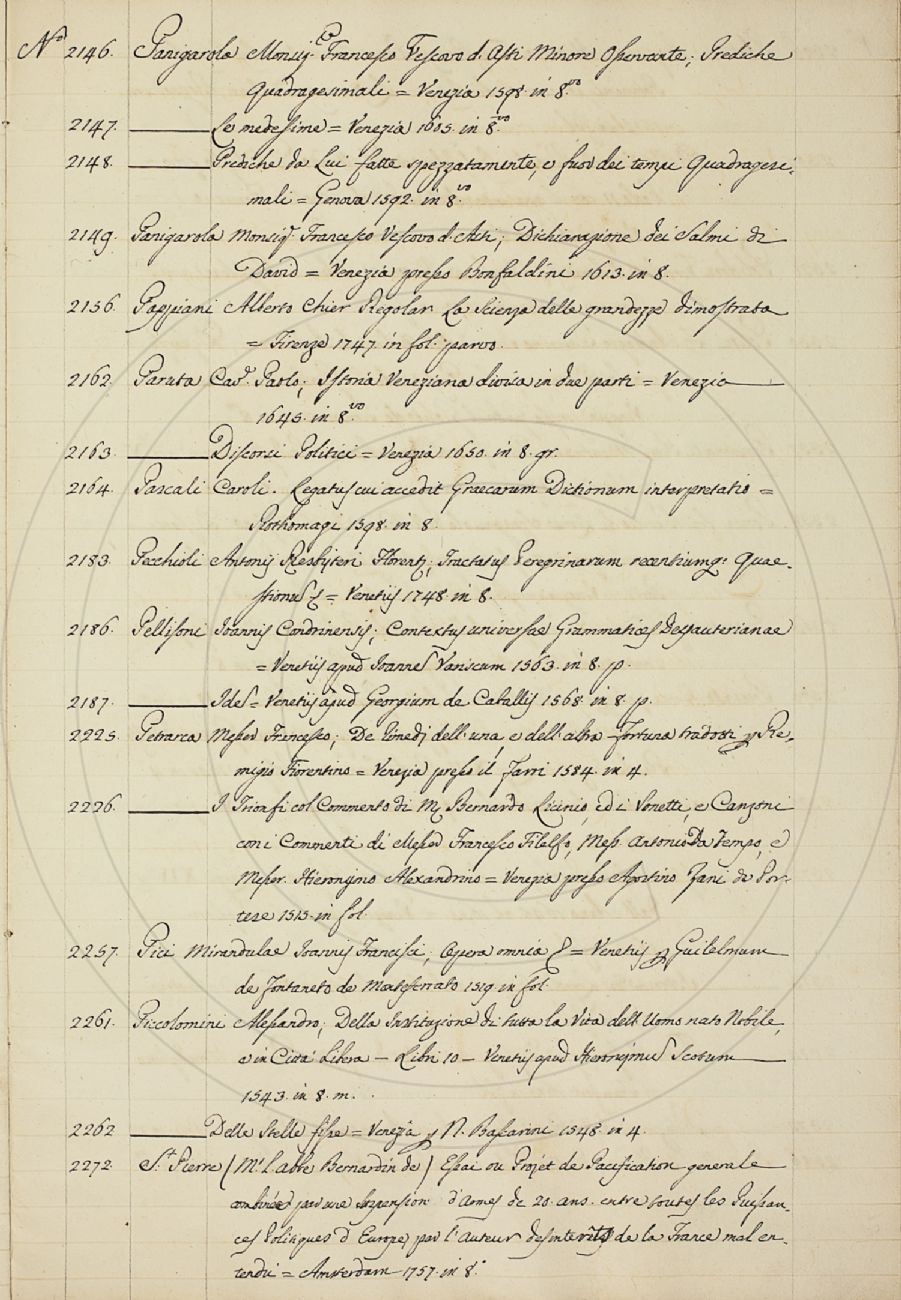 N.º 2146. Panigarola Monsig.r Fra Francesco Vescovo d'Asti Minore Osservante; Prediche
Quadragesimali = Venezia 1598. in 8.vo
2147. ——— Le medesime = Venezia 1605. in 8.vo
2148. ——— Prediche da Lui fatte spezzatamente, e fuor dei tempi Quadragesi-
mali = Genova 1592. in 8.vo
2149. Panigarola Monsig.r Francesco Vescovo d'Asti; Dichiarazione dei Salmi di
David = Venezia presso Bonfaldini 1613. in 8.
2156. Pappiani Alberto Chier Regolar La Scienza delle grandezze dimostrata
= Firenze 1747. in fol. parvo.
2162. Paruta Cav.r Paolo; Istoria Veneziana divisa in due parti = Venezia ———
1645. in 8.vo
2163. ——— Discorsi Politici = Venezia 1650. in 8. gr.
2164. Pascali Caroli. Legatus cui accedit Graecarum Dictionum interpretatio =
Rothomagi 1598. in 8.
2183. Pecchioli Antonij Presbiteri Florent.; Tractatus Peregrinarum recentiumq: Quae-
stionus & = Venetijs 1748. in 8.
2186. Pellisoni Joannis Condrinensis; Contextus universae Grammatices Despauterianae
= Venetijs apud Joannes Variscum 1563. in 8. p.
2187. ——— Ides = Venetijs apud Georgium de Caballis 1568. in 8. p.
2225. Petrarca Messer Francesco; De Rimedj dell' una, e dell' altra Fortuna tradotti p Re-
migio Fiorentino = Venezia presso il Farri 1584. in 4.
2226. ——— I Trionfi col Commento di M. Bernardo Licinio, ed i Sonetti, e Canzoni
con i Commenti di Messer Francesco Filelfo, Mess. Antonio Da Tempo, e
Messer. Hieronijmo Alexandrino = Venezia presso Agostino Zani de Por-
tese 1515. in fol.
2257. Pici Mirandulae Joannis Francisci; Opera omnia & = Venetijs p Guilelmum
de Fontaneto de Monteferrato 1519. in fol.
2261. Piccolomini Alessandro; Della Instituzione di tutta la Vita dell Uomo nato Nobile,
e in Città Libera — Libri 10 — Venetijs apud Hieronijmus Scotum ———
1543. in 8. m.
2262 ——— Delle Stelle fisse = Venezia p N. Bascarini 1548. in 4.
2272. S.t Pierre (Mr. l'abbe Bernardin de) Essai ou Projet de Pacification generale
combinée par une suspension d'Armes de 20. ans. entre toutes les Puissan-
ces Politiques d'Europe, par l'Auteur des interêts de la France mal en-
tendu = Amsterdam 1757. in 8.